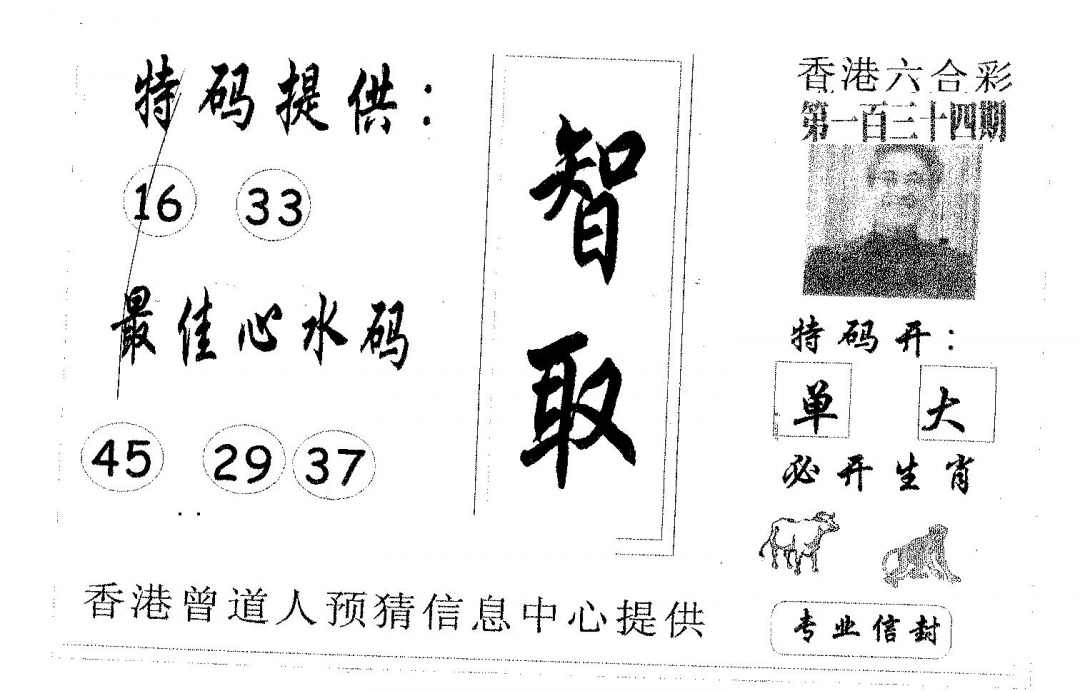 特码提供：
16 33
最佳心水码
45 29 37
智
取
香港六合彩
第一百三十四期
特码开：
单 大
必开生肖
专业信封
香港曾道人预猜信息中心提供